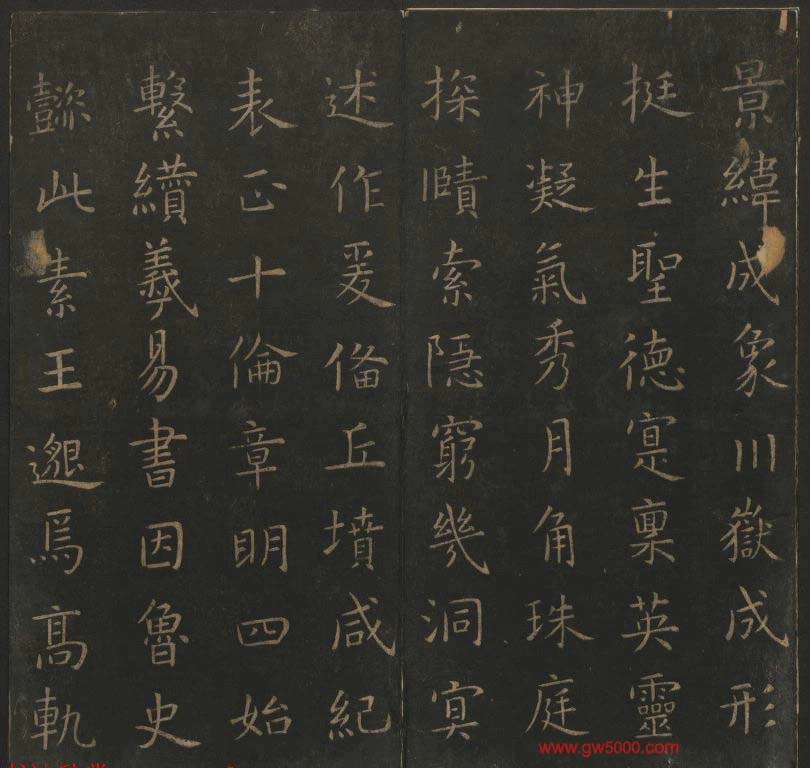 景緯成象川嶽成形
挺生聖德寔稟英靈
神凝氣秀月角珠庭
探賾索隱窮幾洞冥
述作爰俻丘墳咸紀
表正十倫章明四始
繫纘羲易書因魯史
懿此素王邈焉高軌
www.gw5000.com